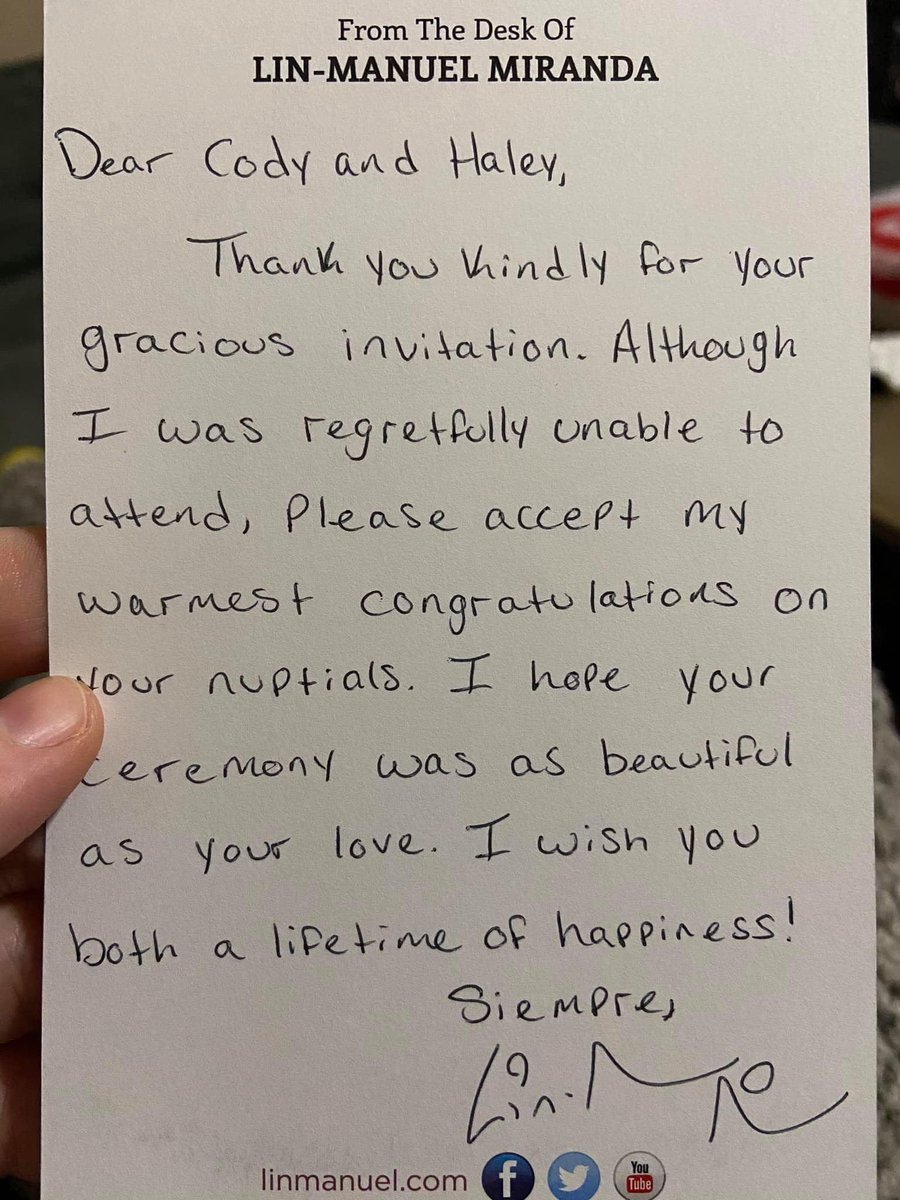 From The Desk Of
LIN-MANUEL MIRANDA
Dear Cody and Haley,
Thank you kindly for your
gracious invitation. Although
I was regretfully unable to
attend, Please accept my
warmest congratulations on
your nuptials. I hope your
ceremony was as beautiful
as your love. I wish you
both a lifetime of happiness!
Siempre,
Lin-
linmanuel.com f You Tube